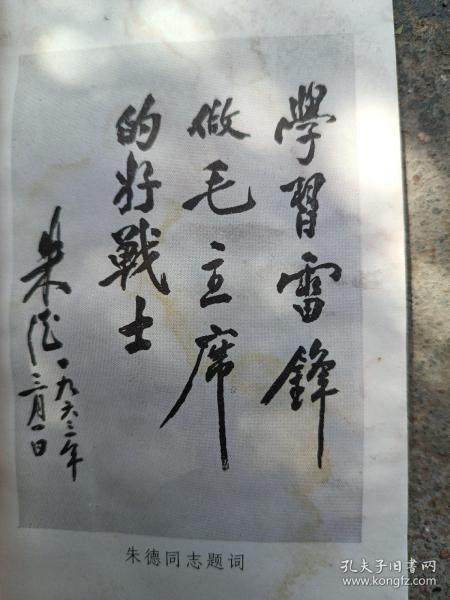 學習雷鋒
做毛主席
的好戰士
朱德
一九六三年
三月一日
朱德同志题词
孔夫子旧书网
www.kongfz.com